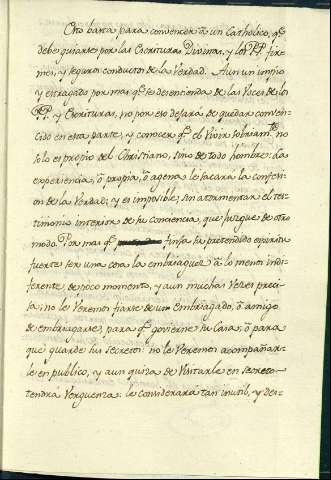 Esto basta para convencer à un Catholico, q.e
debe guiarse por las Escrituras Divinas, y los PP. fir-
mes, y seguros conductos de la Verdad. Aun un impio
y estragado por mas q.e se desentienda de las Voces de los
PP. y Escrituras, no por eso dejará de quedar conven-
cido en esta parte, y conocer q.e el Vivir sobriam.te no
solo es propio del Christiano, sino de todo hombre: La
experiencia, ò propia, ò agena le sacara la confesi-
on de la Verdad; y es imposible, sin atormentar el tes-
timonio interior de su conciencia, que juzgue de otro
modo. Por mas q.e finja su pretendido espiritu
fuerte ser una cosa la embriaguez à lo menos indi-
ferente, de poco momento, y aun muchas Veces preci-
sa; no le Veremos fiarse de un Embriagado, ò amigo
de embriagarse, para q.e govierne su Casa; ò para
que guarde sus secretos: no le Veremos acompañar-
le en publico, y aun quiza de Visitarle en secreto
tendrá Verguenza: le considerará tan inutil, y des-